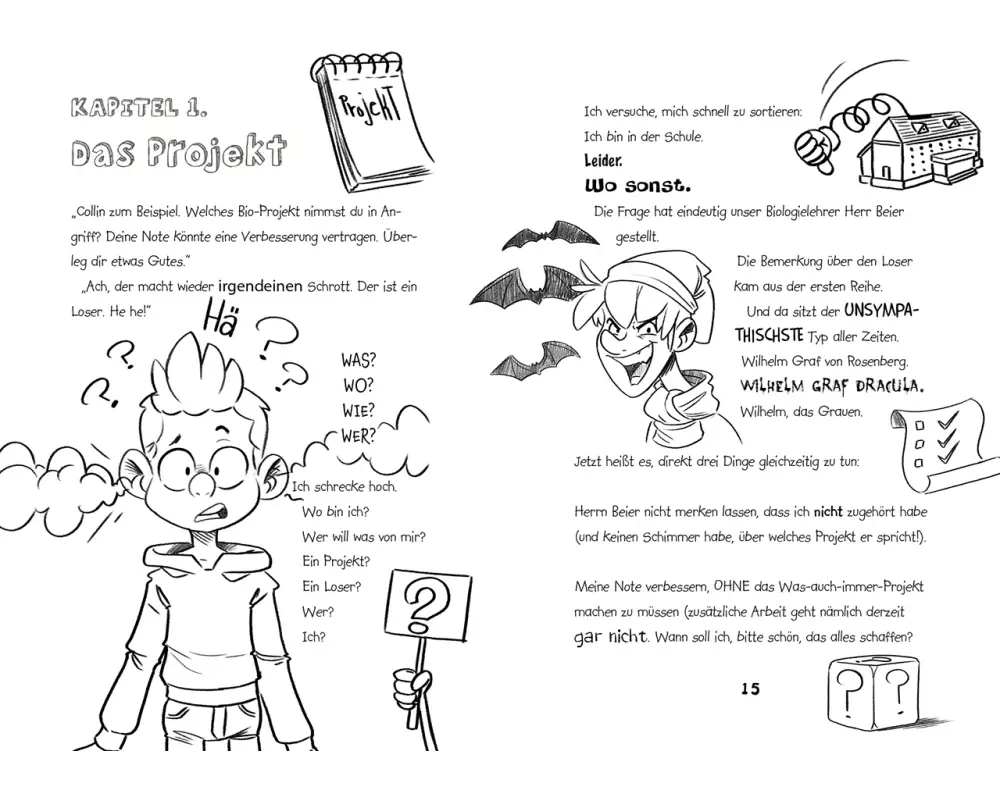 KAPITEL 1.
Das Projekt
Projekt
„Collin zum Beispiel. Welches Bio-Projekt nimmst du in An-
griff? Deine Note könnte eine Verbesserung vertragen. Über-
leg dir etwas Gutes.“
„Ach, der macht wieder irgendeinen Schrott. Der ist ein
Loser. He he!“
Hä
? ? ? ?
WAS?
WO?
WIE?
WER?
Ich schrecke hoch.
Wo bin ich?
Wer will was von mir?
Ein Projekt?
Ein Loser?
Wer?
Ich?
?
Ich versuche, mich schnell zu sortieren:
Ich bin in der Schule.
Leider.
Wo sonst.
Die Frage hat eindeutig unser Biologielehrer Herr Beier
gestellt.
Die Bemerkung über den Loser
kam aus der ersten Reihe.
Und da sitzt der UNSYMPA-
THISCHSTE Typ aller Zeiten.
Wilhelm Graf von Rosenberg.
WILHELM GRAF DRACULA.
Wilhelm, das Grauen.
Jetzt heißt es, direkt drei Dinge gleichzeitig zu tun:
Herrn Beier nicht merken lassen, dass ich nicht zugehört habe
(und keinen Schimmer habe, über welches Projekt er spricht!).
Meine Note verbessern, OHNE das Was-auch-immer-Projekt
machen zu müssen (zusätzliche Arbeit geht nämlich derzeit
gar nicht. Wann soll ich, bitte schön, das alles schaffen?
15
? ?